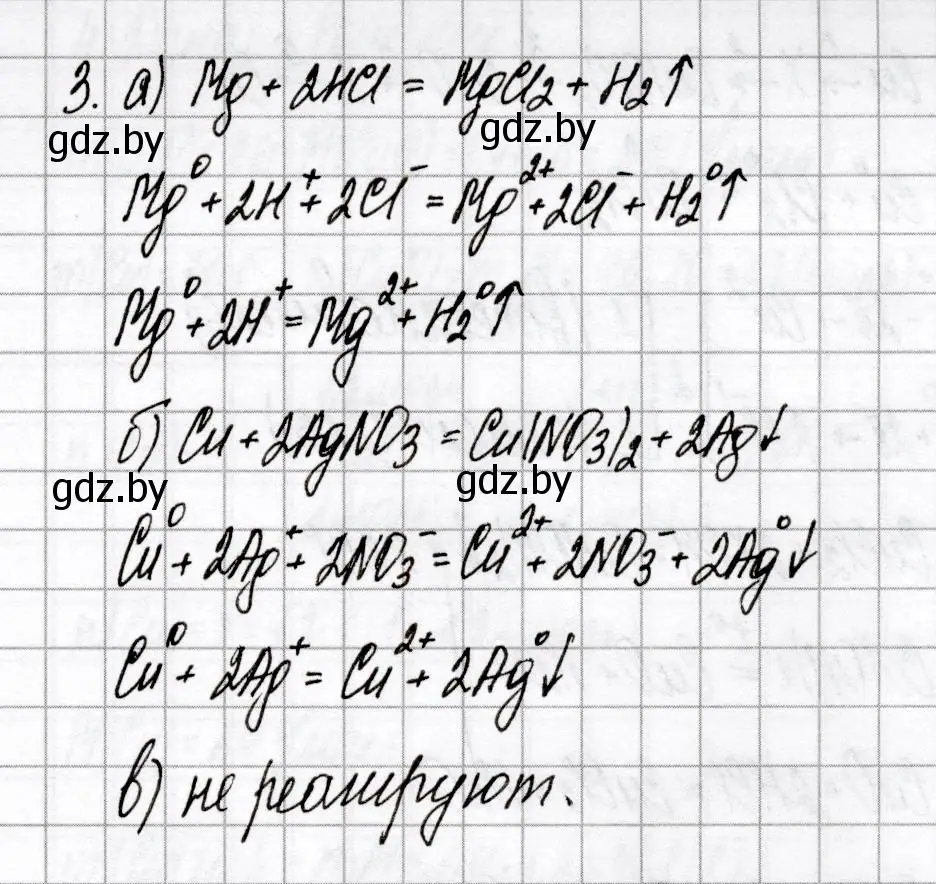 3. а) Mg + 2HCl = MgCl₂ + H₂↑
gdz.by gdz.by
Mg⁰ + 2H⁺ + 2Cl⁻ = Mg²⁺ + 2Cl⁻ + H₂⁰↑
Mg⁰ + 2H⁺ = Mg²⁺ + H₂⁰↑
б) Cu + 2AgNO₃ = Cu(NO₃)₂ + 2Ag↓
gdz.by gdz.by
Cu⁰ + 2Ag⁺ + 2NO₃⁻ = Cu²⁺ + 2NO₃⁻ + 2Ag⁰↓
Cu⁰ + 2Ag⁺ = Cu²⁺ + 2Ag⁰↓
в) не реагируют.